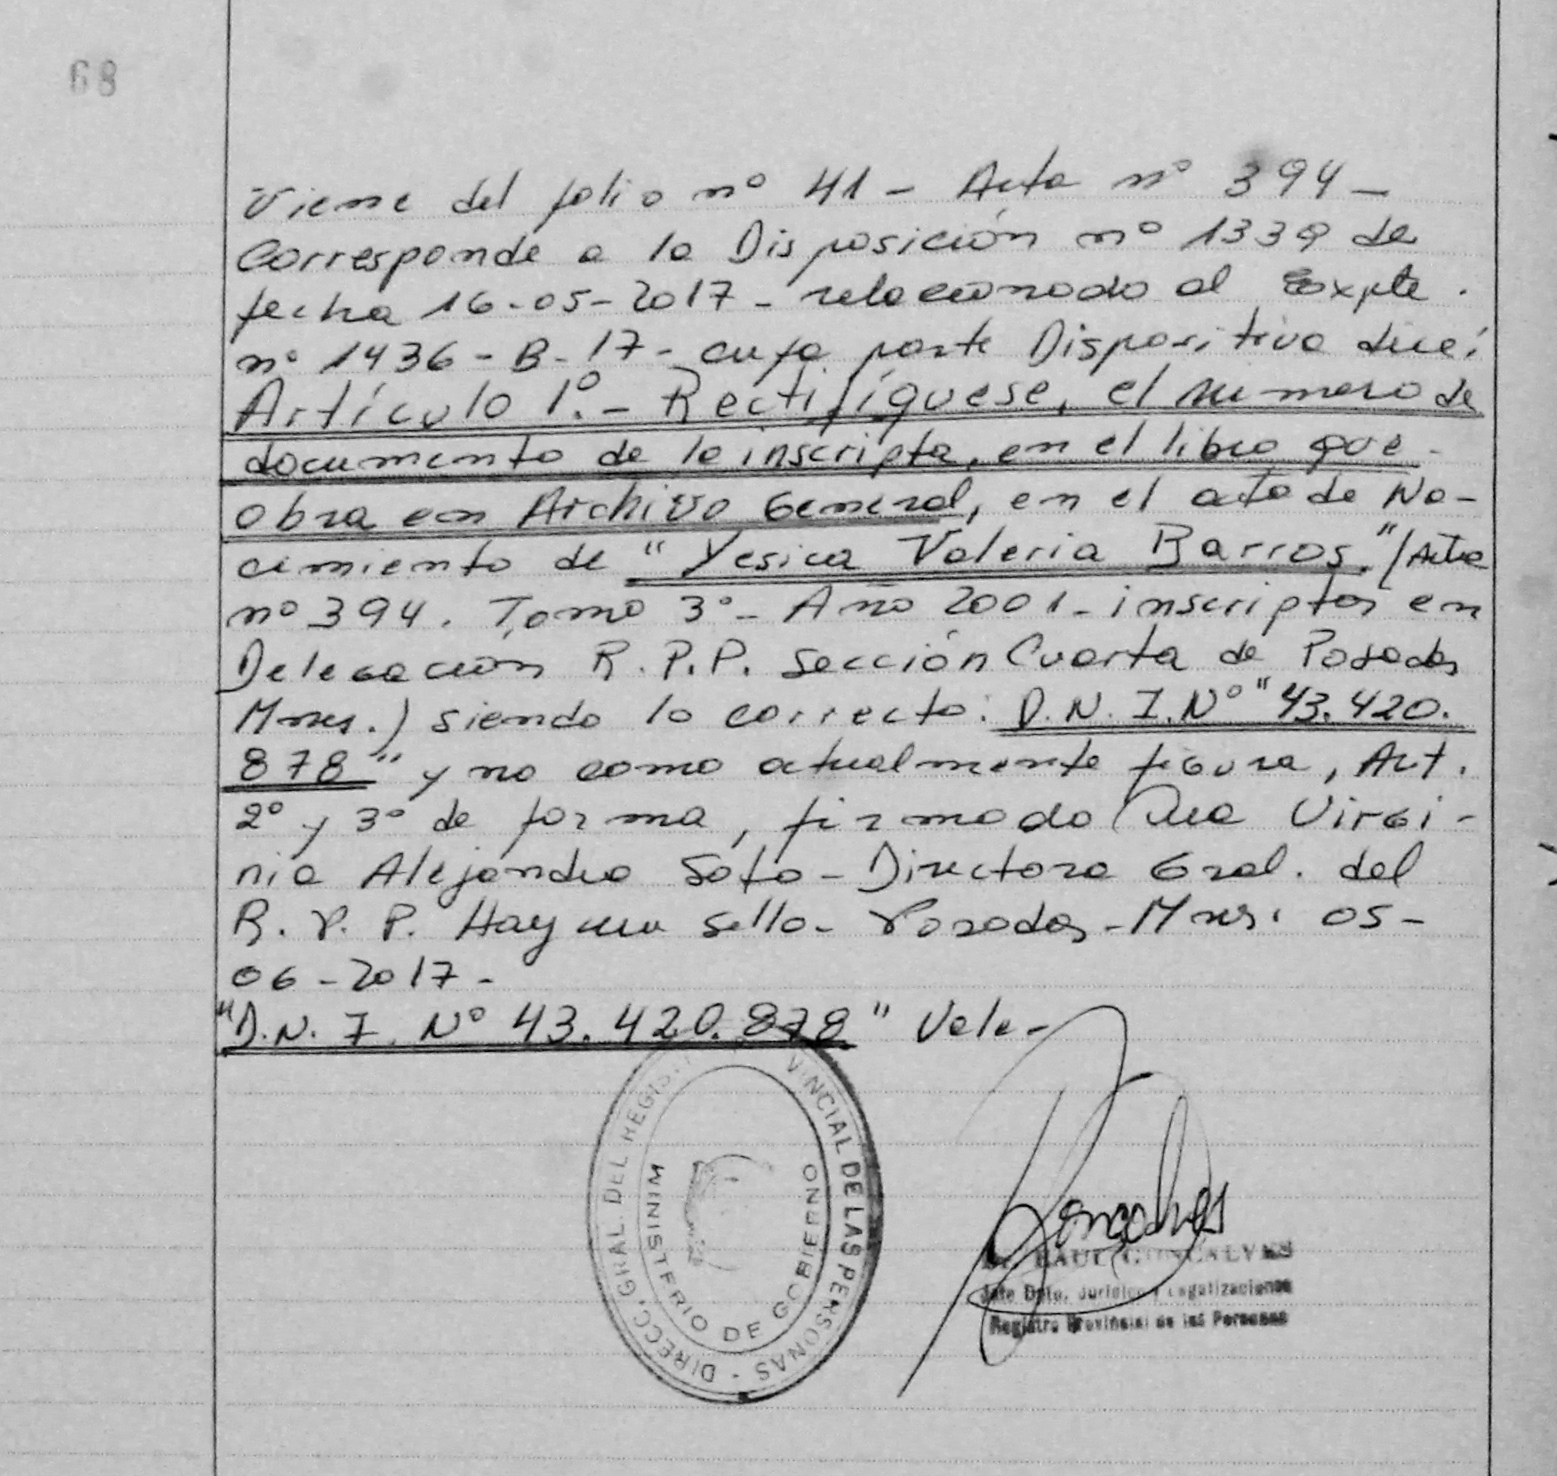 68
Viene del folio nº 41 - Acta nº 394 -
Corresponde a la Disposición nº 1339 de
fecha 16-05-2017 - relacionado al Expte.
nº 1436 - B - 17 - cuya parte Dispositiva dice:
Artículo 1º.- Rectifíquese, el número de
documento de la inscripta, en el libro que
obra en Archivo General, en el acta de Na-
cimiento de "Yesica Valeria Barros." (Acta
nº 394. Tomo 3º - Año 2001 - inscriptos en
Delegación R.P.P. Sección Cuarta de Posadas
Mnes.) siendo lo correcto: D.N.I. Nº "43.420.
878" y no como actualmente figura, Art.
2º y 3º de forma, firmado Dra Virgi-
nia Alejandra Soto - Directora Gral. del
R.P.P. Hay un sello - Posadas - Mnes. 05-
06-2017 -
"D.N.I. Nº 43.420.878" Vale -
DIRECC. GRAL. DEL REGIS VINCIAL DE LAS PERSONAS -
MINISTERIO DE GOBIERNO
RAUL GONCALVES
Jefe Dpto. Jurídico y Legalizaciones
Registro Provincial de las Personas